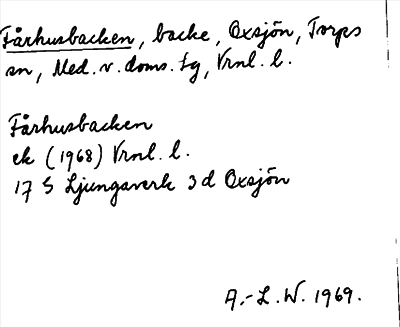 Fårhusbacken, backe, Oxsjön, Torps
sn, Med. v. doms. tg, Vrnl. l.
Fårhusbacken
ek (1968) Vrnl. l.
17 S Ljungaverk 3 d Oxsjön
A.-L. W. 1969.